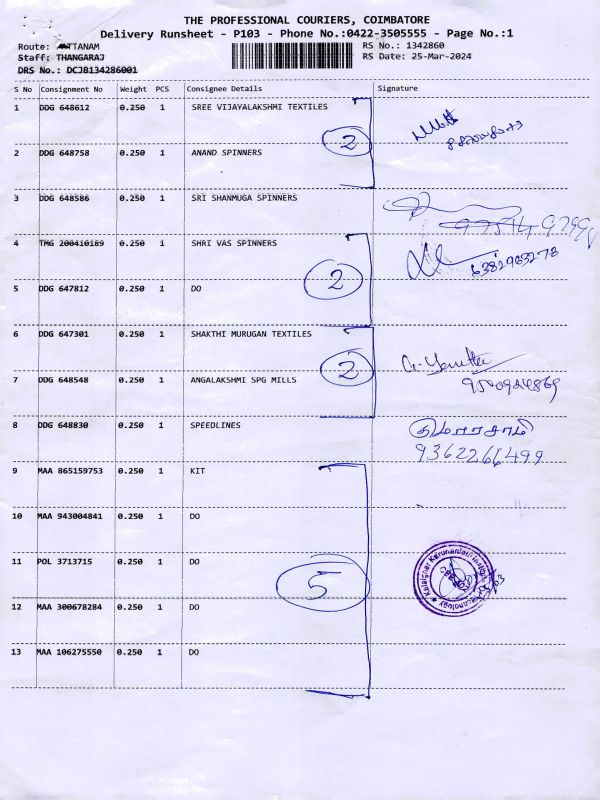 THE PROFESSIONAL COURIERS, COIMBATORE
Delivery Runsheet - P103 - Phone No.:0422-3505555 - Page No.:1
Route: TTANAM RS No.: 1342860
Staff: THANGARAJ RS Date: 25-Mar-2024
DRS No.: DCJB134286001
S No Consignment No Weight PCS Consignee Details Signature
1 DDG 648612 0.250 1 SREE VIJAYALAKSHMI TEXTILES
2
2 DDG 648758 0.250 1 ANAND SPINNERS
3 DDG 648586 0.250 1 SRI SHANMUGA SPINNERS
4 TMG 200410189 0.250 1 SHRI VAS SPINNERS
6382963278
2
5 DDG 647812 0.250 1 DO
6 DDG 647301 0.250 1 SHAKTHI MURUGAN TEXTILES
2
7 DDG 648548 0.250 1 ANGALAKSHMI SPG MILLS
8 DDG 648830 0.250 1 SPEEDLINES
9362266499
9 MAA 865159753 0.250 1 KIT
10 MAA 943004841 0.250 1 DO
11 POL 3713715 0.250 1 DO
5
12 MAA 300678284 0.250 1 DO
13 MAA 106275550 0.250 1 DO